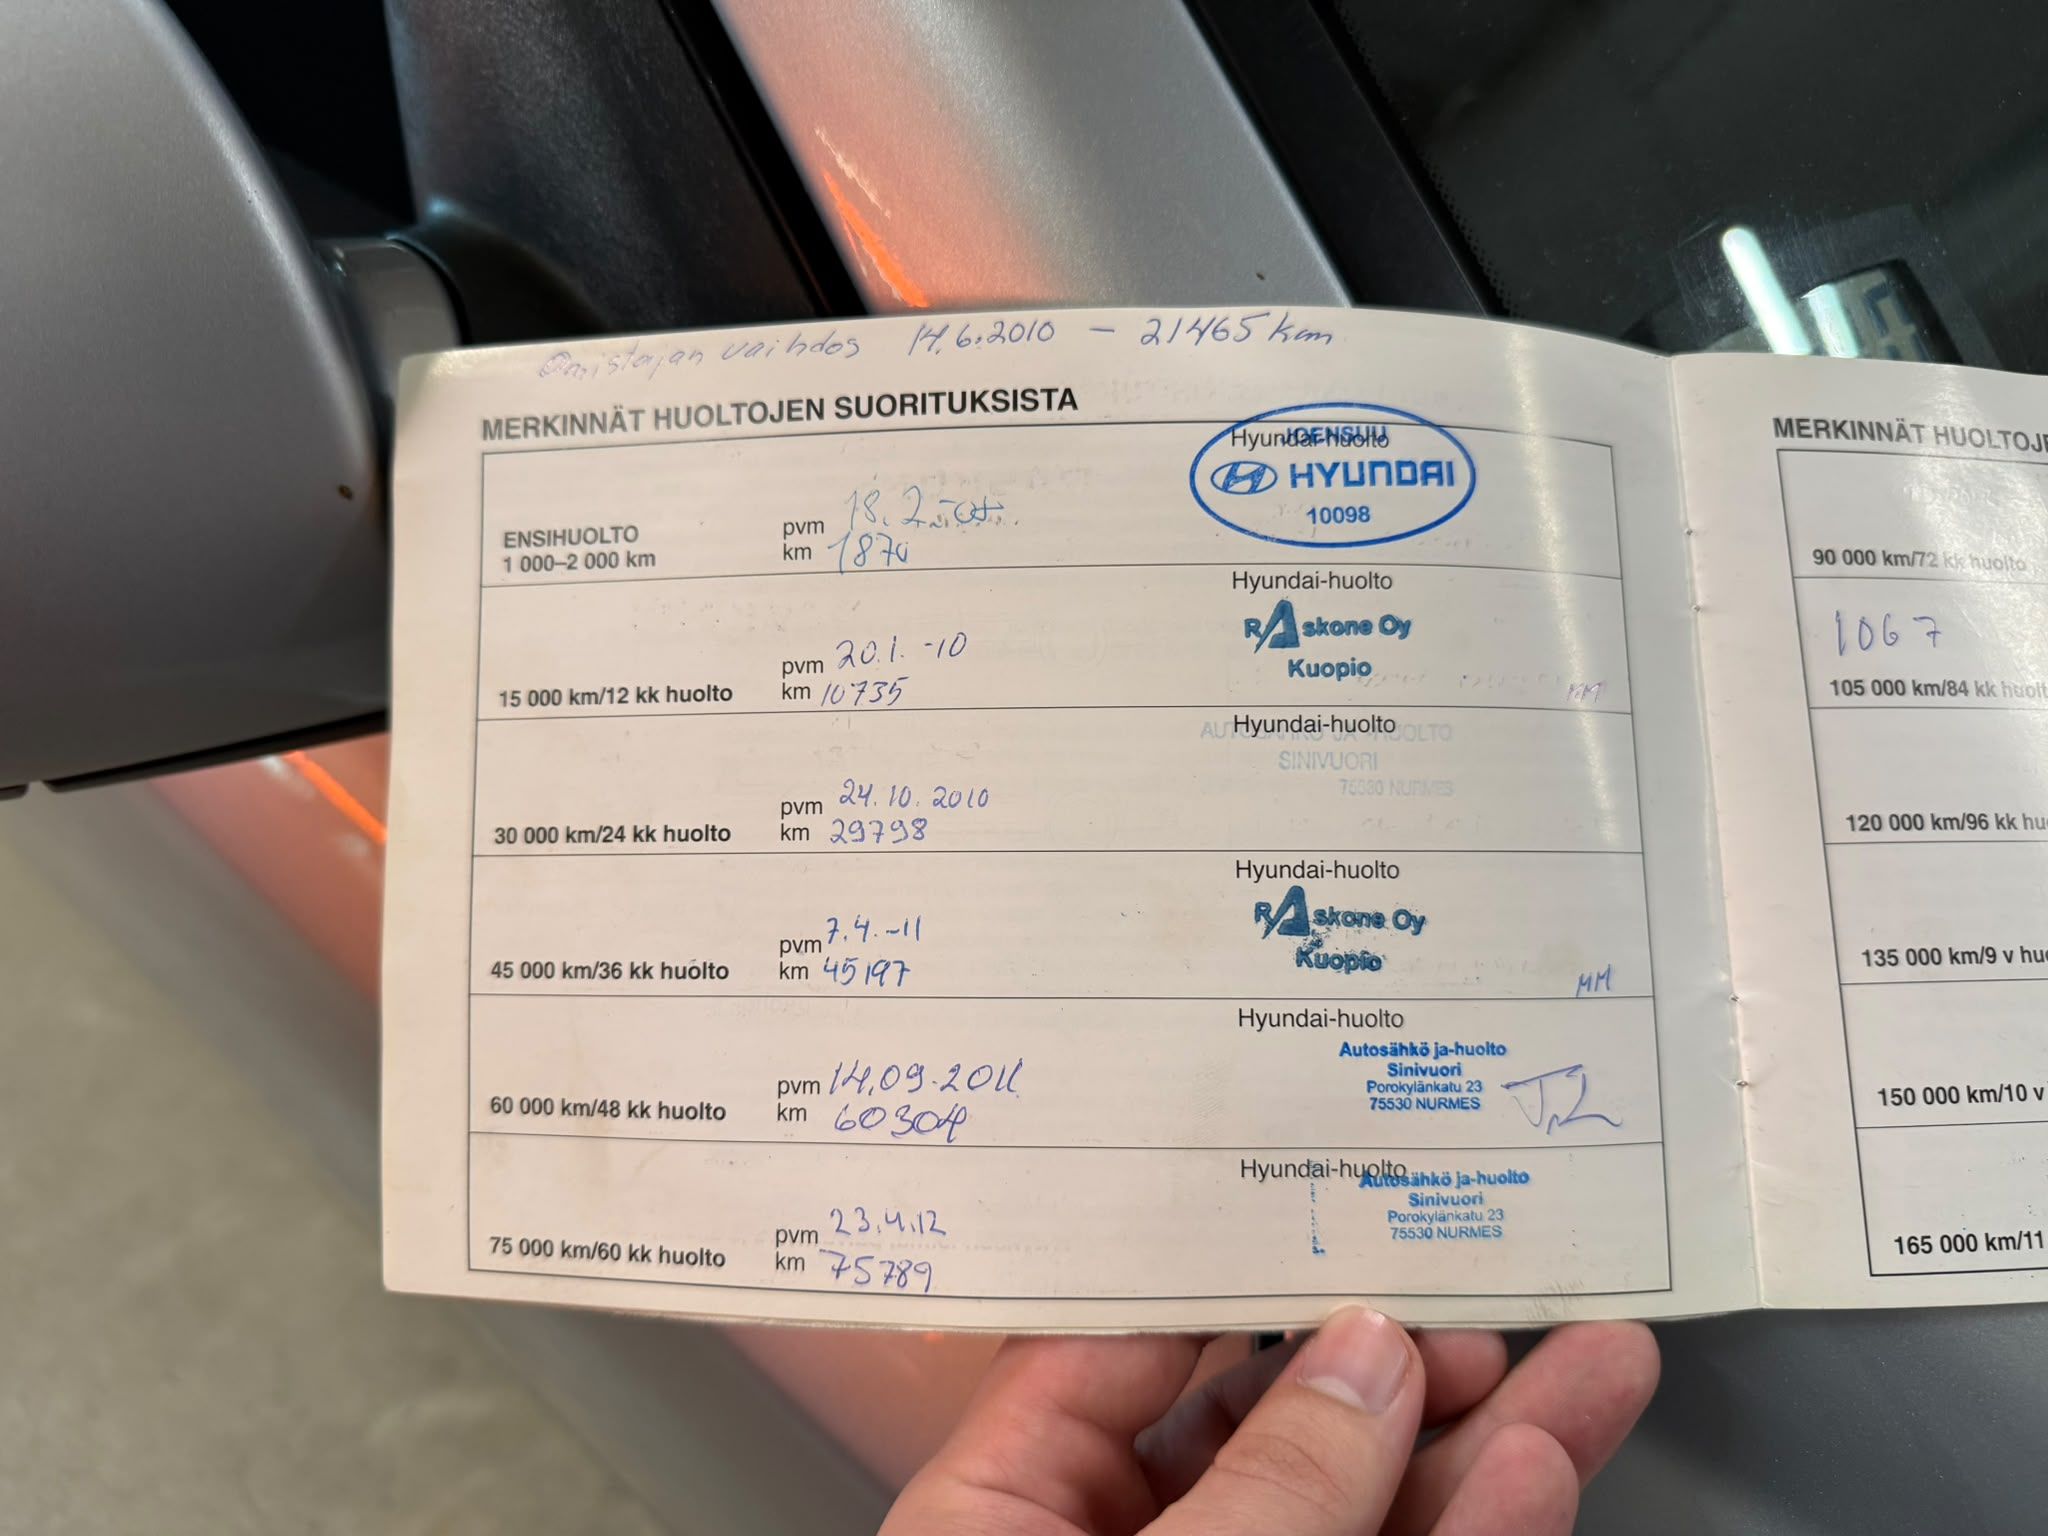 Omistajan vaihdos 14.6.2010 – 21465 km
MERKINNÄT HUOLTOJEN SUORITUKSISTA
Hyundai-huolto
JOENSUU
HYUNDAI
10098
ENSIHUOLTO
1 000–2 000 km
pvm 18.2
km 1870
Hyundai-huolto
RAskone Oy
Kuopio
15 000 km/12 kk huolto
pvm 20.1.-10
km 10735
MM
Hyundai-huolto
AUTOSÄHKÖ JA -HUOLTO
SINIVUORI
75530 NURMES
30 000 km/24 kk huolto
pvm 24.10.2010
km 29798
Hyundai-huolto
RAskone Oy
Kuopio
45 000 km/36 kk huolto
pvm 7.4.-11
km 45197
MM
Hyundai-huolto
Autosähkö ja-huolto
Sinivuori
Porokylänkatu 23
75530 NURMES
60 000 km/48 kk huolto
pvm 14.09.2011
km 60304
Hyundai-huolto
Autosähkö ja-huolto
Sinivuori
Porokylänkatu 23
75530 NURMES
75 000 km/60 kk huolto
pvm 23.4.12
km 75789
MERKINNÄT HUOLTOJE
90 000 km/72 kk huolto
1067
105 000 km/84 kk huolt
120 000 km/96 kk hu
135 000 km/9 v hu
150 000 km/10 v
165 000 km/11